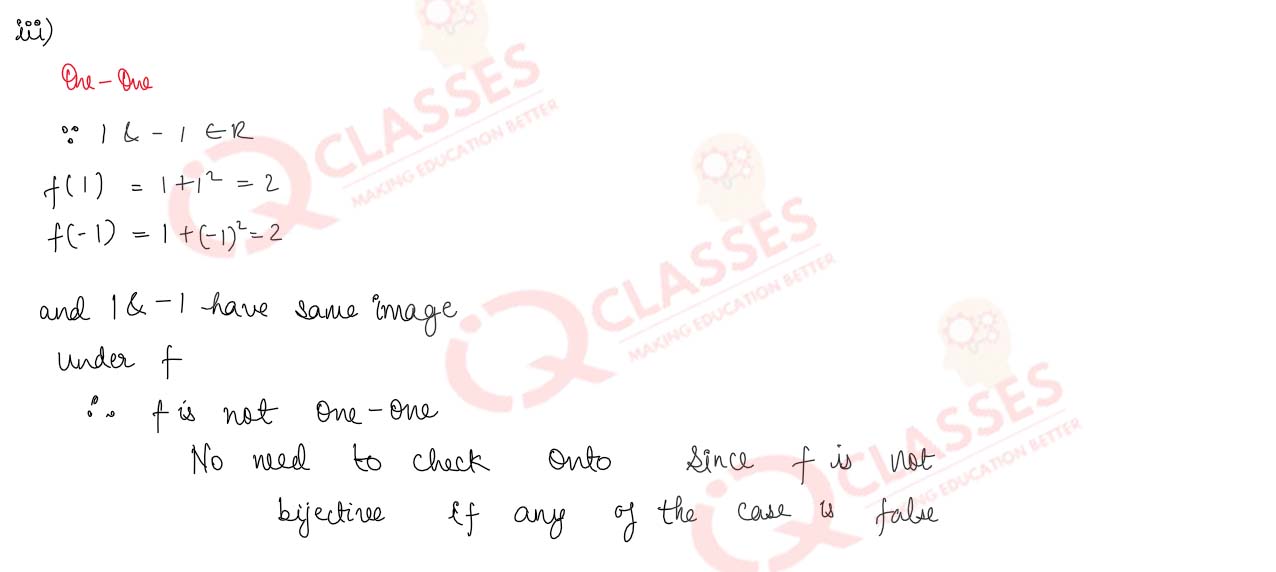 iii)
One-One
∵ 1 & -1 ∈ R
f(1) = 1+1² = 2
f(-1) = 1+(-1)² = 2
and 1 & -1 have same image
under f
∴ f is not One-One
No need to check Onto Since f is not
bijective if any of the case is false
IQ CLASSES
MAKING EDUCATION BETTER
IQ CLASSES
MAKING EDUCATION BETTER
IQ CLASSES
MAKING EDUCATION BETTER